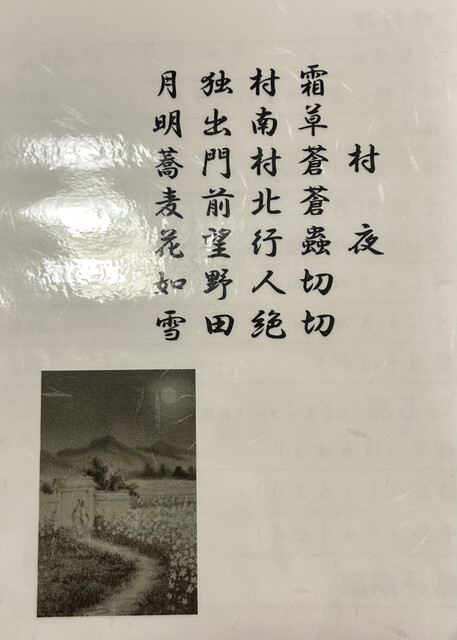 村夜
霜草蒼蒼蟲切切
村南村北行人絶
独出門前望野田
月明蕎麦花如雪